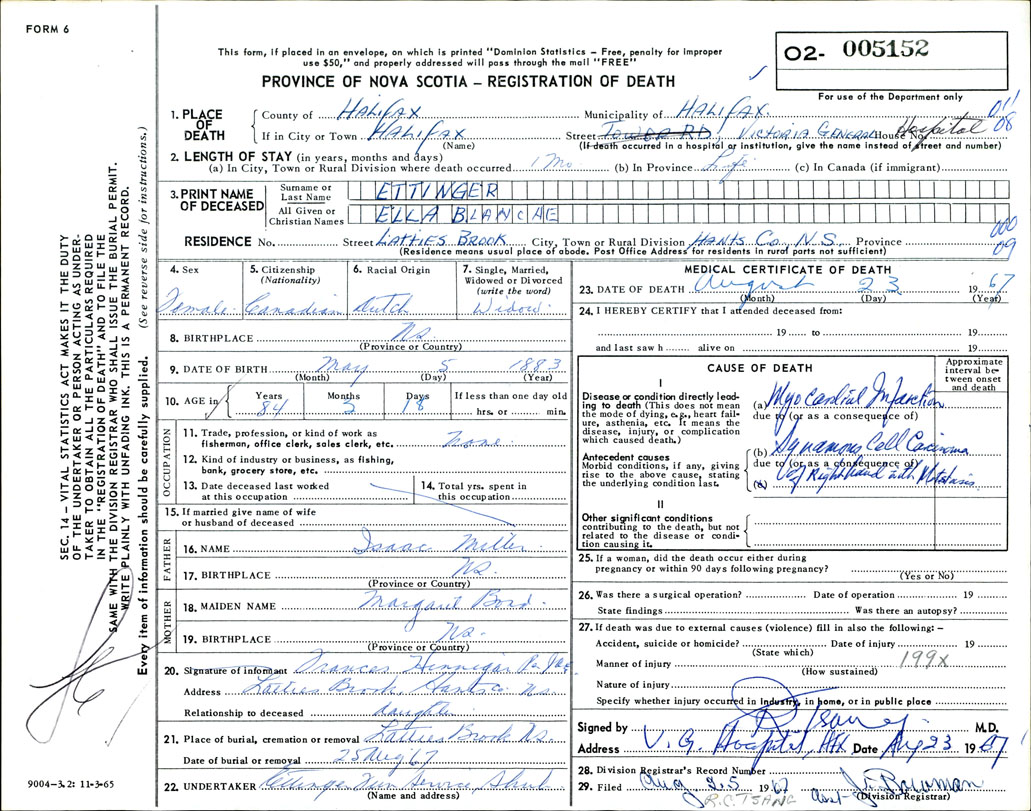 FORM 6
This form, if placed in an envelope, on which is printed "Dominion Statistics – Free, penalty for improper
use $50," and properly addressed will pass through the mail "FREE"
PROVINCE OF NOVA SCOTIA – REGISTRATION OF DEATH
O2- 005152
For use of the Department only
1. PLACE OF DEATH
County of HALIFAX Municipality of HALIFAX 011
If in City or Town HALIFAX Street TOWER RD VICTORIA GENERAL House No. Hospital 08
(Name) (If death occurred in a hospital or institution, give the name instead of street and number)
2. LENGTH OF STAY (in years, months and days)
(a) In City, Town or Rural Division where death occurred 1 Mo (b) In Province Life (c) In Canada (if immigrant)
3. PRINT NAME OF DECEASED
Surname or Last Name ETTINGER
All Given or Christian Names ELLA BLANCHE
000
RESIDENCE No. Street LATTIES BROOK City, Town or Rural Division HANTS CO. N.S. Province 09
(Residence means usual place of abode. Post Office Address for residents in rural parts not sufficient)
4. Sex
Female
5. Citizenship
(Nationality)
Canadian
6. Racial Origin
Dutch
7. Single, Married,
Widowed or Divorced
(write the word)
Widow
8. BIRTHPLACE NS
(Province or Country)
9. DATE OF BIRTH May 5 1883
(Month) (Day) (Year)
10. AGE in Years Months Days If less than one day old
84 3 18 hrs. or min.
OCCUPATION
11. Trade, profession or kind of work as
fisherman, office clerk, sales clerk, etc. None
12. Kind of industry or business, as fishing,
bank, grocery store, etc.
13. Date deceased last worked
at this occupation
14. Total yrs. spent in
this occupation
15. If married give name of wife
or husband of deceased
FATHER
16. NAME Isaac Miller
17. BIRTHPLACE NS.
(Province or Country)
MOTHER
18. MAIDEN NAME Margaret
19. BIRTHPLACE NS.
(Province or Country)
20. Signature of informant Frances Hennigar
Address Latties Brook, Hants Co NS.
Relationship to deceased daughter
21. Place of burial, cremation or removal Latties Brook NS.
Date of burial or removal 25 Aug 67
22. UNDERTAKER Ettinger
(Name and address)
MEDICAL CERTIFICATE OF DEATH
23. DATE OF DEATH August 23 19 67
(Month) (Day) (Year)
24. I HEREBY CERTIFY that I attended deceased from:
19 to 19
and last saw h alive on 19
CAUSE OF DEATH
Approximate
interval be-
tween onset
and death
I
Disease or condition directly lead-
ing to death (This does not mean
the mode of dying, e.g., heart fail-
ure, asthenia, etc. It means the
disease, injury, or complication
which caused death.)
(a) Myocardial Infarction
due to (or as a consequence of)
Antecedent causes
Morbid conditions, if any, giving
rise to the above cause, stating
the underlying condition last.
(b) Squamous Cell Carcinoma
due to (or as a consequence of)
(c) of Right hand with Metastasis
II
Other significant conditions
contributing to the death, but not
related to the disease or condi-
tion causing it.
25. If a woman, did the death occur either during
pregnancy or within 90 days following pregnancy?
(Yes or No)
26. Was there a surgical operation? Date of operation 19
State findings Was there an autopsy?
27. If death was due to external causes (violence) fill in also the following: –
Accident, suicide or homicide? Date of injury 19
(State which)
Manner of injury 199X
(How sustained)
Nature of injury
Specify whether injury occurred in industry, in home, or in public place
Signed by R. Tsang M.D.
Address V. G. Hospital, Hfx Date Aug 23 19 67
28. Division Registrar's Record Number
29. Filed Aug 25 19 67
R.C. TSANG Asst- (Division Registrar)
SEC. 14 – VITAL STATISTICS ACT MAKES IT THE DUTY
OF THE UNDERTAKER OR PERSON ACTING AS UNDER-
TAKER TO OBTAIN ALL THE PARTICULARS REQUIRED
IN THE "REGISTRATION OF DEATH" AND TO FILE THE
SAME WITH THE DIVISION REGISTRAR WHO SHALL ISSUE THE BURIAL PERMIT.
WRITE PLAINLY WITH UNFADING INK. THIS IS A PERMANENT RECORD.
Every item of information should be carefully supplied. (See reverse side for instructions.)
9004–3.2: 11-3-65